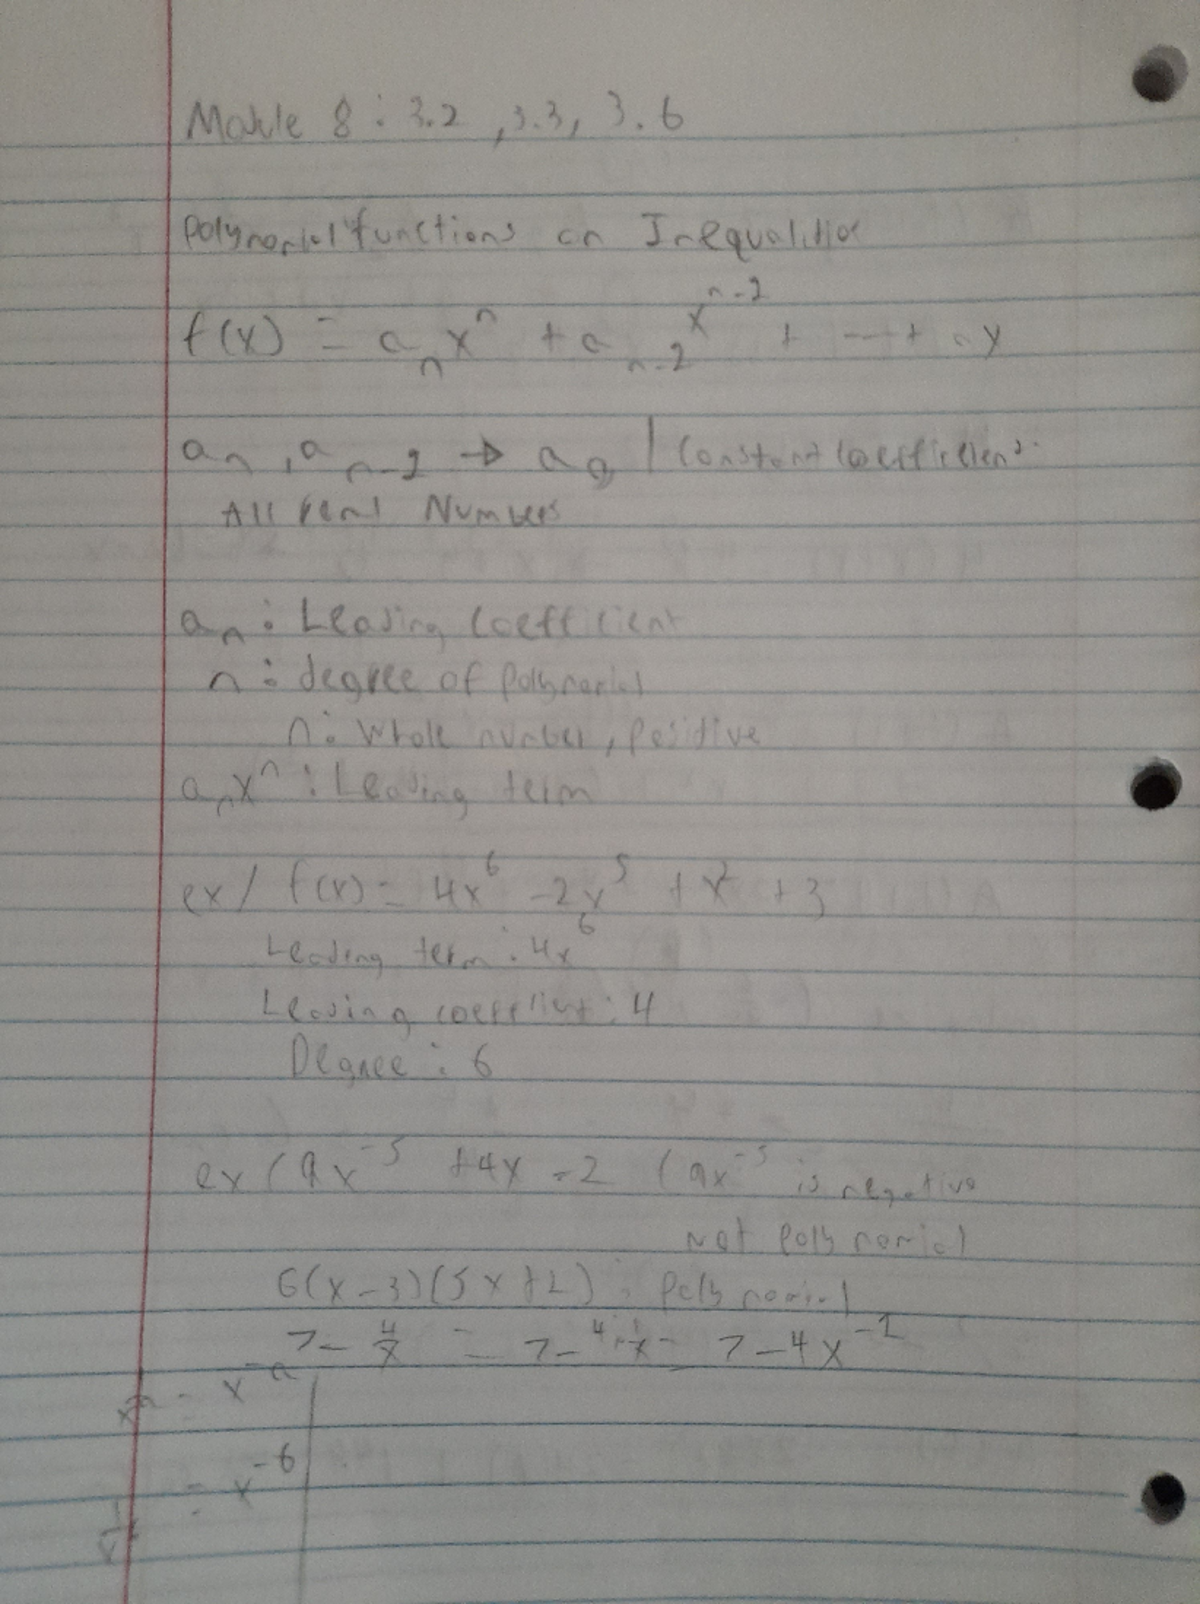 Module 8 : 3.2 , 3.3, 3.6
Polynomial functions an Inequalities
f(x) = a_n x^n + a_{n-2} x^{n-2} + --- +
a_n , a_{n-2} → a_0 | Constant Coefficient
All Real Numbers
a_n : Leading Coefficient
n : degree of polynomial
n : Whole number, positive
a_n x^n : Leading term
ex / f(x) = 4x^6 - 2x^5 + x^2 + 3
Leading term : 4x^6
Leading coefficient : 4
Degree : 6
ex ( 9x^{-5} + 4x - 2 ( 9x^{-5} is negative
Not polynomial
6(x-3)(5x+2) : Polynomial
7 - 4/x = 7 - 4 · 1/x = 7 - 4x^{-1}
= x^{-n}
= x^{-6}